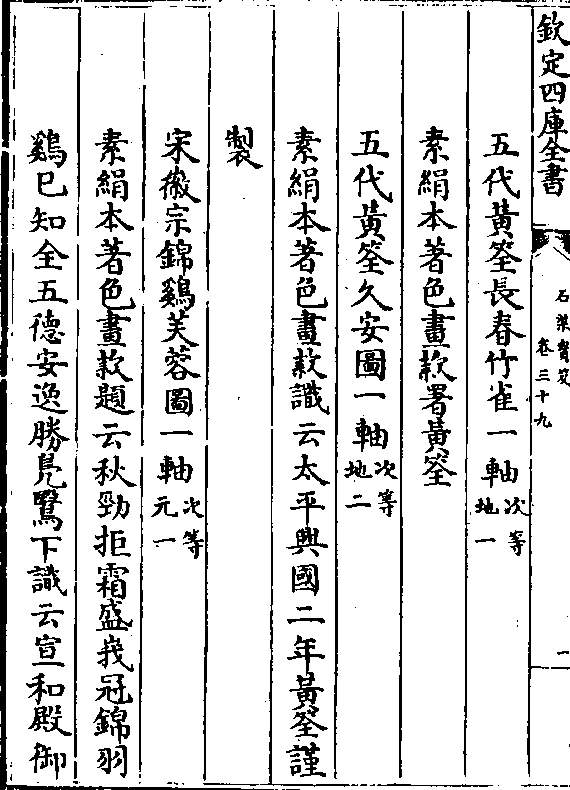 欽定四庫全書
石渠寶笈
卷三十九
一
五代黃筌長春竹雀一軸次等地一
素絹本著色畫款署黃筌
五代黃筌久安圖一軸次等地二
素絹本著色畫款識云太平興國二年黃筌謹
製
宋徽宗錦鷄芙蓉圖一軸次等元一
素絹本著色畫款題云秋勁拒霜盛峩冠錦羽
鷄已知全五德安逸勝鳧鷖下識云宣和殿御